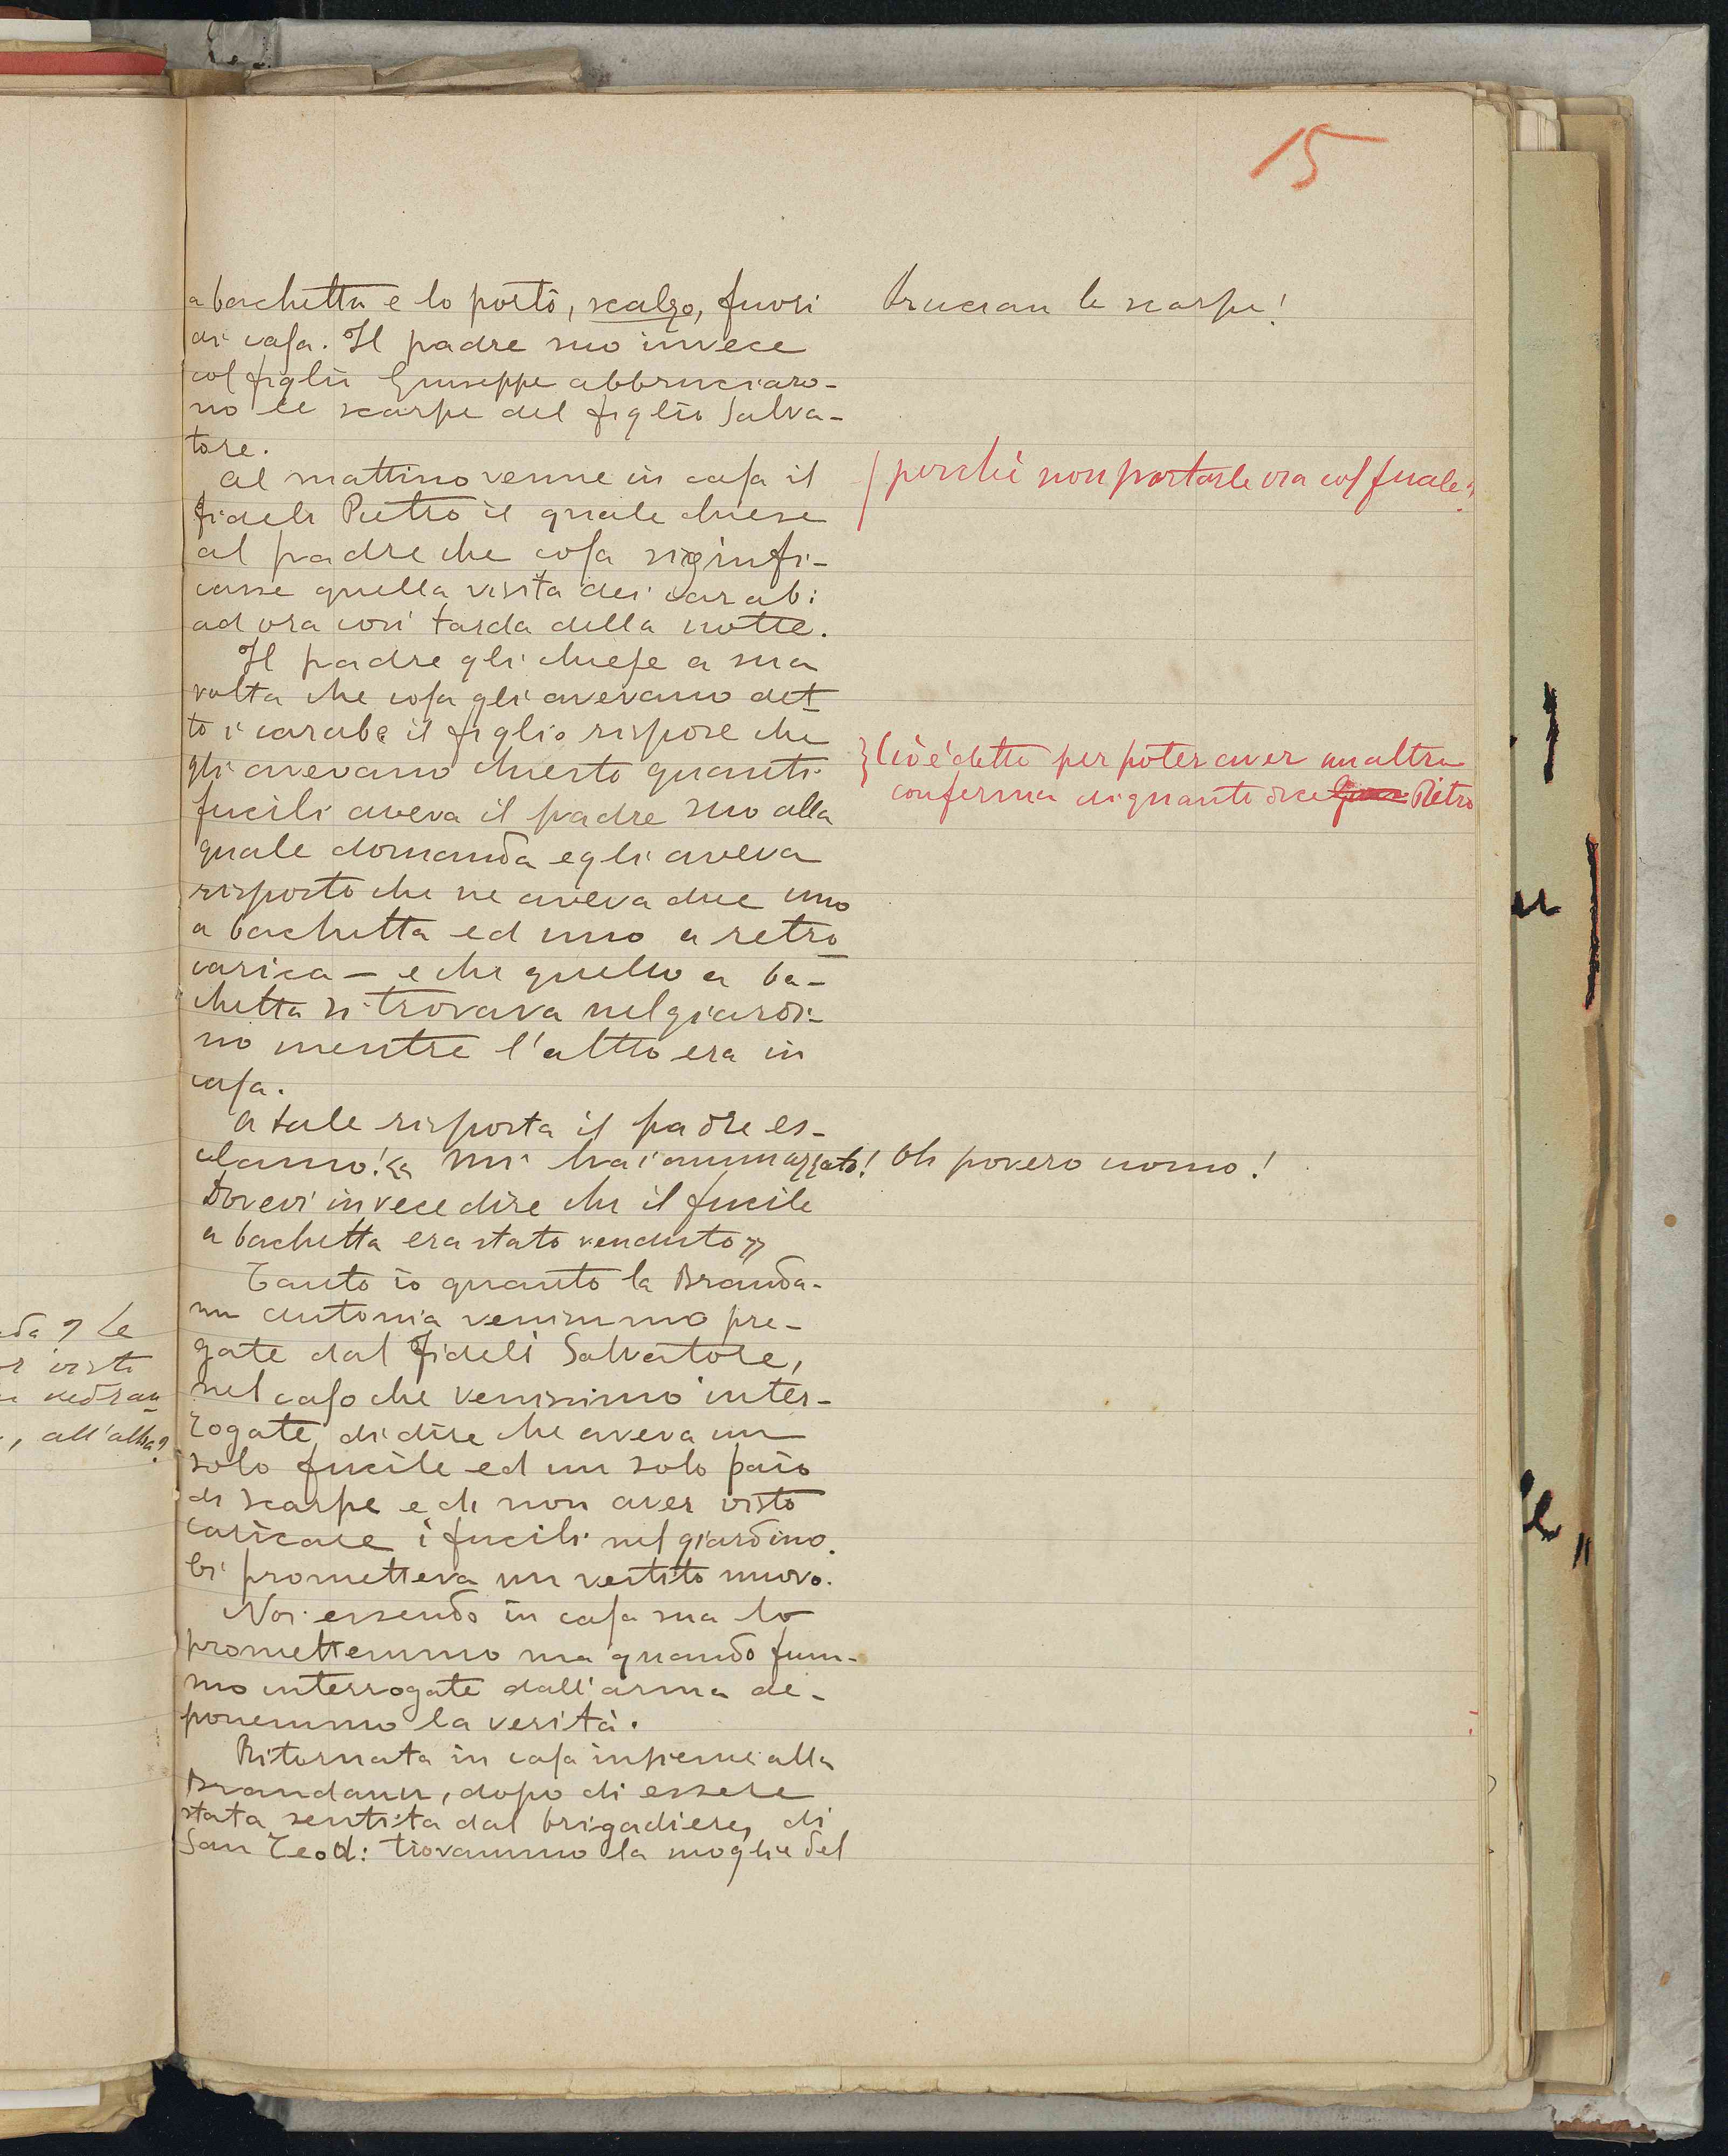 15
a bachetta e lo portò, scalzo, fuori
di casa. Il padre suo invece
col figlio Giuseppe abbruciaro-
no le scarpe del figlio Salva-
tore.
Al mattino venne in casa il
Fideli Pietro il quale chiese
al padre che cosa siginfi-
casse quella visita dei carabi
ad ora così tarda della notte.
Il padre gli chiese a sua
volta che cosa gli avevano det
to i carab e il figlio rispose che
gli avevano chiesto quanti
fucili aveva il padre suo alla
quale domanda egli aveva
risposto che ne aveva due uno
a bachetta ed uno a retro
carica — e che quello a ba-
chetta si trovava nel giardi-
no mentre l'altro era in
casa.
A tale risposta il padre es-
clamò! « Mi hai ammazzato!
Dovevi invece dire che il fucile
a bachetta era stato venduto »
Tanto io quanto la Branda-
nu Antonia venimmo pre-
gate dal Fideli Salvatore,
nel caso che venissimo inter-
rogate, di dire che aveva un
solo fucile ed un solo paio
di scarpe e di non aver visto
caricare i fucili nel giardino.
Ci prometteva un vestito nuovo.
Noi essendo in casa sua lo
promettemmo ma quando fum-
mo interrogate dall'arma de-
ponemmo la verità.
Ritornata in casa insieme alla
Brandanu, dopo di essere
stata sentita dal brigadiere, di
San Teod: trovammo la moglie del
brucian le scarpe!
perchè non portarle via col fucile?
Ciò è detto per poter aver un altra
conferma di quanto dice Pietro
Oh povero uomo!
da? Le
visti
vedran
, all'alba?